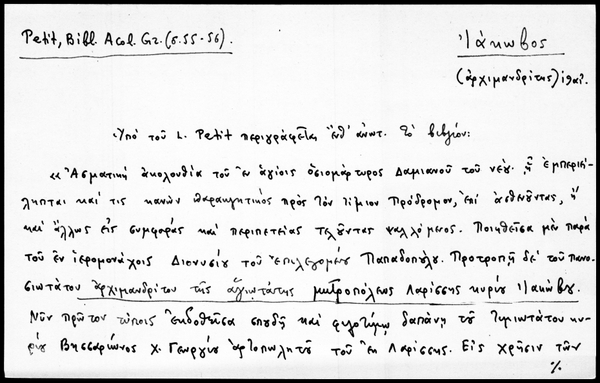 Petit, Bibl. Acol. Gr. (σ. 55-56).
Ἰάκωβος
(ἀρχιμανδρίτης)
Ὑπὸ τοῦ L. Petit περιγράφεται ἐνθ' ἀνωτ. τὸ βιβλίον:
«Ἀσματικὴ ἀκολουθία τοῦ ἐν ἁγίοις ὁσιομάρτυρος Δαμιανοῦ τοῦ νέου. ᾗ ἐμπεριεί-
ληπται καί τις κανὼν παρακλητικὸς πρὸς τὸν τίμιον Πρόδρομον, ἐπὶ ἀσθενοῦντας, ἢ
καὶ ἄλλως εἰς συμφορὰς καὶ περιπετείας τελοῦντας ψαλλόμενος. Ποιηθεῖσα μὲν παρὰ
τοῦ ἐν ἱερομονάχοις Διονυσίου τοῦ ἐπιλεγομένου Παπαδοπούλου. Προτροπῇ δὲ τοῦ πανο-
σιωτάτου ἀρχιμανδρίτου τῆς ἁγιωτάτης μητροπόλεως Λαρίσσης κυρίου Ἰακώβου.
Νῦν πρῶτον τύποις ἐκδοθεῖσα σπουδῇ καὶ φιλοτίμῳ δαπάνῃ τοῦ τιμιωτάτου κυ-
ρίου Βησσαρίωνος Χ. Γεωργίου ἀρτοπωλητοῦ τοῦ ἐκ Λαρίσσης. Εἰς χρῆσιν τῶν
%